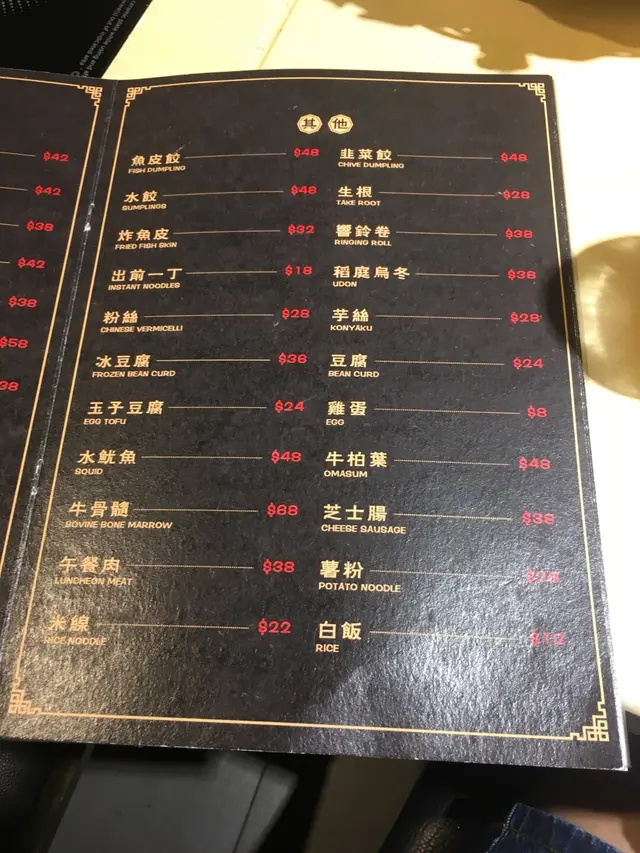 其他
$42
$42
$38
$42
$38
$58
$38
魚皮餃 $48
FISH DUMPLING
水餃 $48
SUMPLINGS
炸魚皮 $32
FRIED FISH SKIN
出前一丁 $18
INSTANT NOODLES
粉絲 $28
CHINESE VERMICELLI
冰豆腐 $38
FROZEN BEAN CURD
玉子豆腐 $24
EGG TOFU
水魷魚 $48
SQUID
牛骨髓 $68
BOVINE BONE MARROW
午餐肉 $38
LUNCHEON MEAT
米線 $22
RICE NOODLE
韭菜餃 $48
CHIVE DUMPLING
生根 $28
TAKE ROOT
響鈴卷 $38
RINGING ROLL
稻庭烏冬 $38
UDON
芋絲 $28
KONYAKU
豆腐 $24
BEAN CURD
雞蛋 $8
EGG
牛柏葉 $48
OMASUM
芝士腸 $38
CHEESE SAUSAGE
薯粉 $28
POTATO NOODLE
白飯
RICE